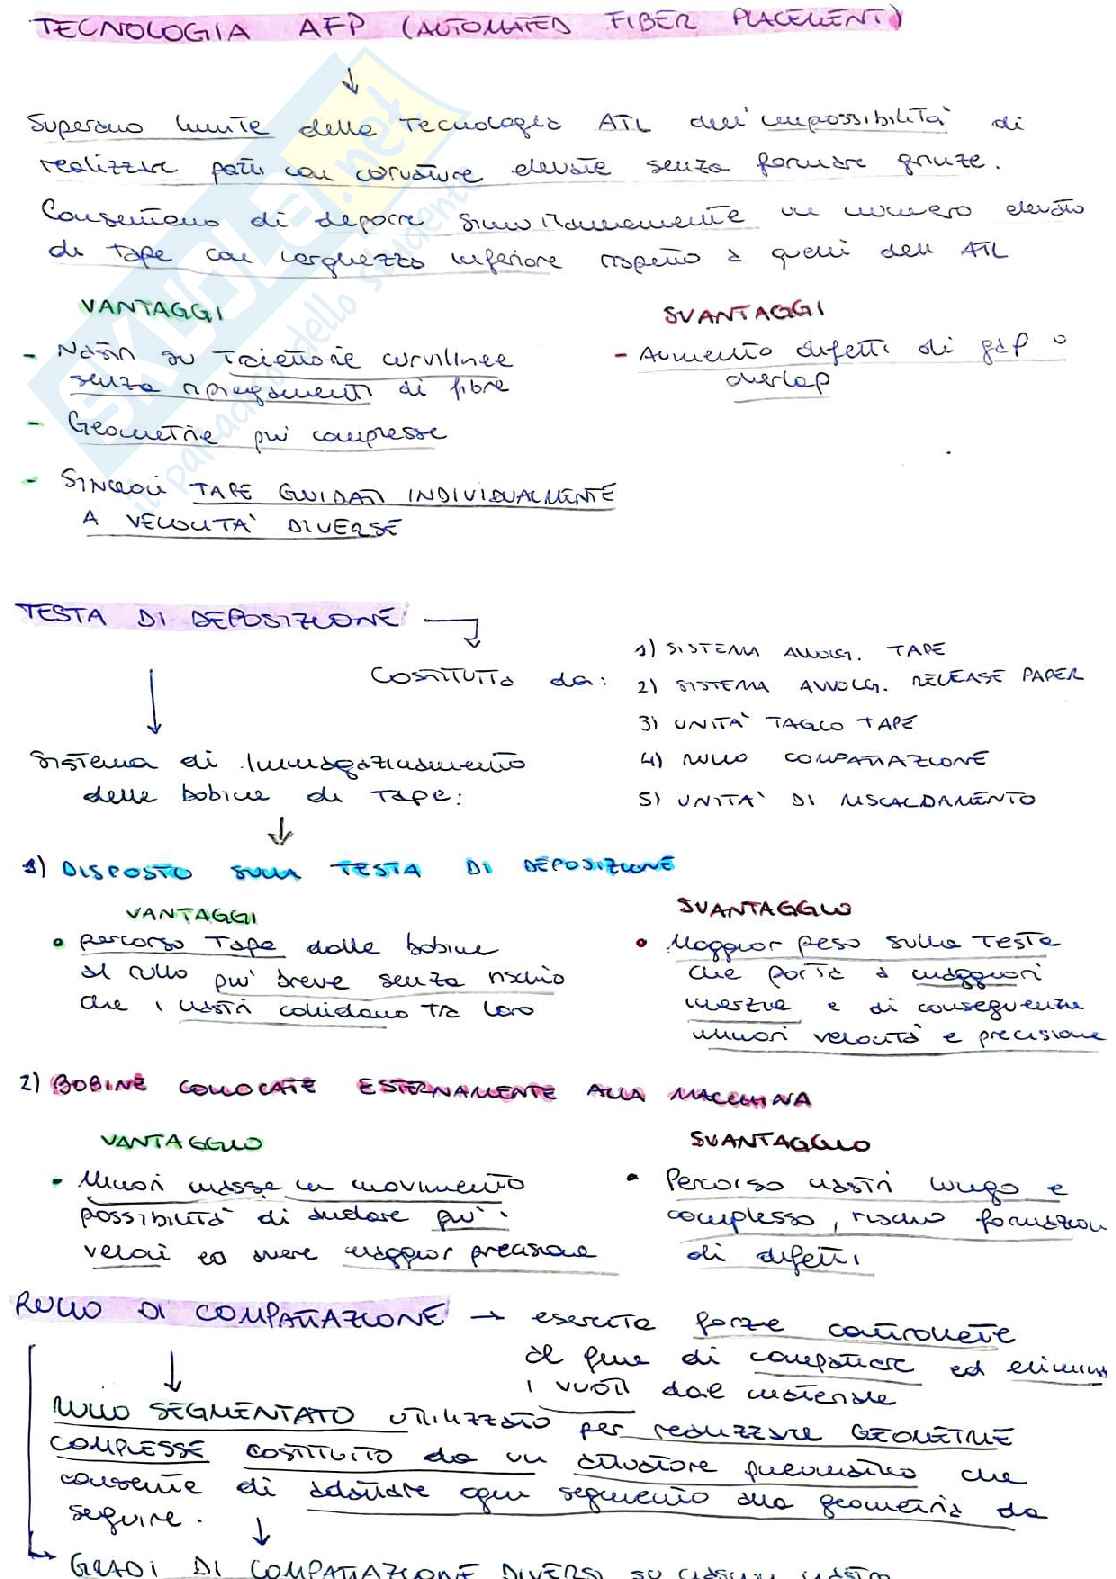 TECNOLOGIA AFP (AUTOMATED FIBER PLACEMENT)
Superano limite della Tecnologia ATL dell'impossibilità di
realizzare parti con curvature elevate senza formare grinze.
Consentono di deporre simultaneamente un numero elevato
di Tape con larghezza inferiore rispetto a quelli dell ATL
VANTAGGI
SVANTAGGI
- Nastri su Traiettorie curvilinee
senza ripiegamenti di fibre
- Aumento difetti di gap o
overlap
- Geometrie più complesse
- SINGOLI TAPE GUIDATI INDIVIDUALMENTE
A VELOCITA' DIVERSE
TESTA DI DEPOSIZIONE
COSTITUITA da:
1) SISTEMA AVVOLG. TAPE
2) SISTEMA AVVOLG. RELEASE PAPER
3) UNITA' TAGLIO TAPE
4) RULLO COMPATTAZIONE
5) UNITA' DI RISCALDAMENTO
Sistema di Immagazzinamento
delle bobine di Tape:
1) DISPOSTO SULLA TESTA DI DEPOSIZIONE
VANTAGGI
• percorso Tape dalle bobine
al rullo più breve senza rischio
che i nastri collidano tra loro
SVANTAGGIO
• Maggior peso sulla Testa
che porta a maggiori
inerzia e di conseguenza
minori velocità e precisione
2) BOBINE COLLOCATE ESTERNAMENTE ALLA MACCHINA
VANTAGGIO
• Minori masse in movimento
possibilità di andare più
veloci ed avere maggior precisione
SVANTAGGIO
• Percorso nastri lungo e
complesso, rischio formazion
di difetti
RULLO DI COMPATTAZIONE → esercita forze controllate
al fine di compattare ed elimin
i vuoti dal materiale
RULLO SEGMENTATO utilizzato per realizzare GEOMETRIE
COMPLESSE COSTITUITO da un attuatore pneumatico che
consente di adattare ogni segmento alla geometria da
seguire.
GRADI DI COMPATTAZIONE DIVERSI su ciascun nastro
SKUOLA.net
il paradiso dello studente